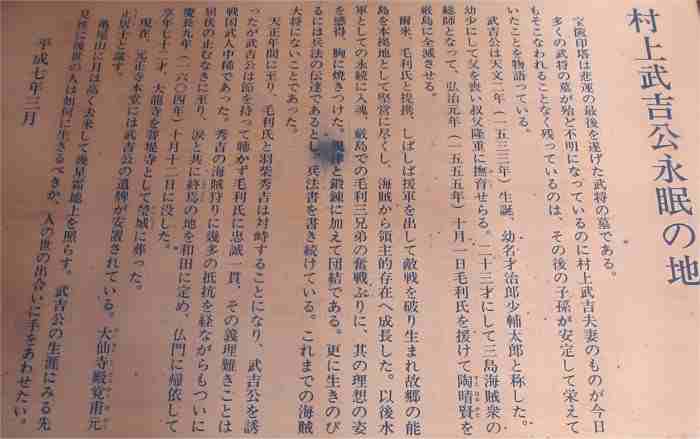 村上武吉公永眠の地
宝篋印塔は悲運の最後を遂げた武将の墓である。
多くの武将の墓が殆ど不明になっているのに村上武吉夫妻のものが今日
もそこなわれることなく残っているのは、その後の子孫が安定して栄えて
いたことを物語っている。
武吉公は天文二年（一五三三年）生誕、幼名才治郎少輔太郎と称した。
幼少にして父を喪い叔父隆重に撫育せらる。二十三才にして三島海賊衆の
総師となって、弘治元年（一五五五年）十月一日毛利氏を援けて陶晴賢を
厳島に全滅させる。
爾来、毛利氏と提携、しばしば援軍を出して敵戦を破り生まれ故郷の能
島を本拠地として堅営に尽くし、海賊から領主的存在へ成長した。以後水
軍としての永続に入魂、厳島での毛利三兄弟の奮戦ぶりに、其の理想の姿
を感得、胸に焼きつけた。規律と鍛錬に加えて団結である。更に生きのび
るには兵法の伝達であるとし、兵法書を書き続けている。これまでの海賊
大将にないことであった。
天正年間に至り、毛利氏と羽柴秀吉は対峙することになり、武吉公を誘
ったが武吉公は節を持って動かず毛利氏に忠誠一貫、その義理難きことは
戦国武人中稀であった。秀吉の海賊狩りに幾多の抵抗を経ながらもついに
屈伏の止むなきに至り、涙と共に終焉の地を和田に定め、仏門に帰依して
慶長九年（一六〇四年）十月十二日に没した。
享年七十二才、大龍寺を菩提寺として塋域に葬った。
現在、元正寺本堂には武吉公の遺牌が安置されている。大仙寺殿覚甫元
正居士と謚す。
亀屋山に月は高く去来して幾星霜地上を照らす。武吉公の生涯にみる先
見性に後世の人は如何に生きるべきか、人の世の出合いに手をあわせたい。
平成七年三月